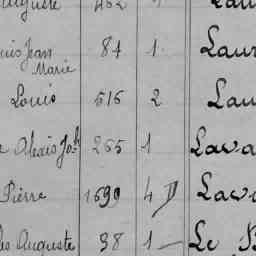 Auguste 462
Jean Marie 84 1 Laur
Louis 516 2 Lau
Alexis Joh 265 1 Lava
Pierre 1699 4 D Lava
Auguste 38 1 — Le B